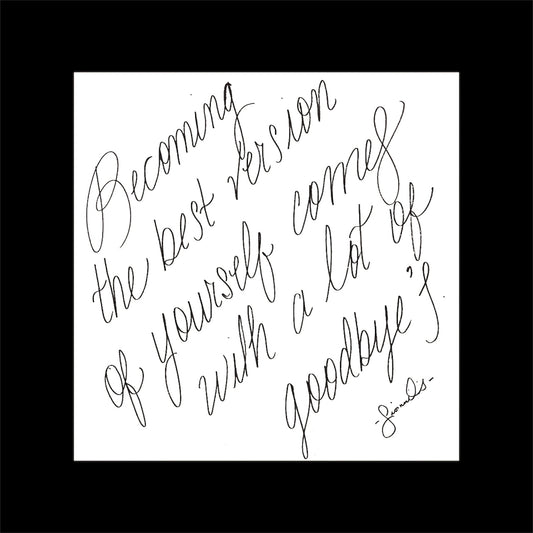 Becoming
the best version
of yourself comes
with a lot of
goodbye's